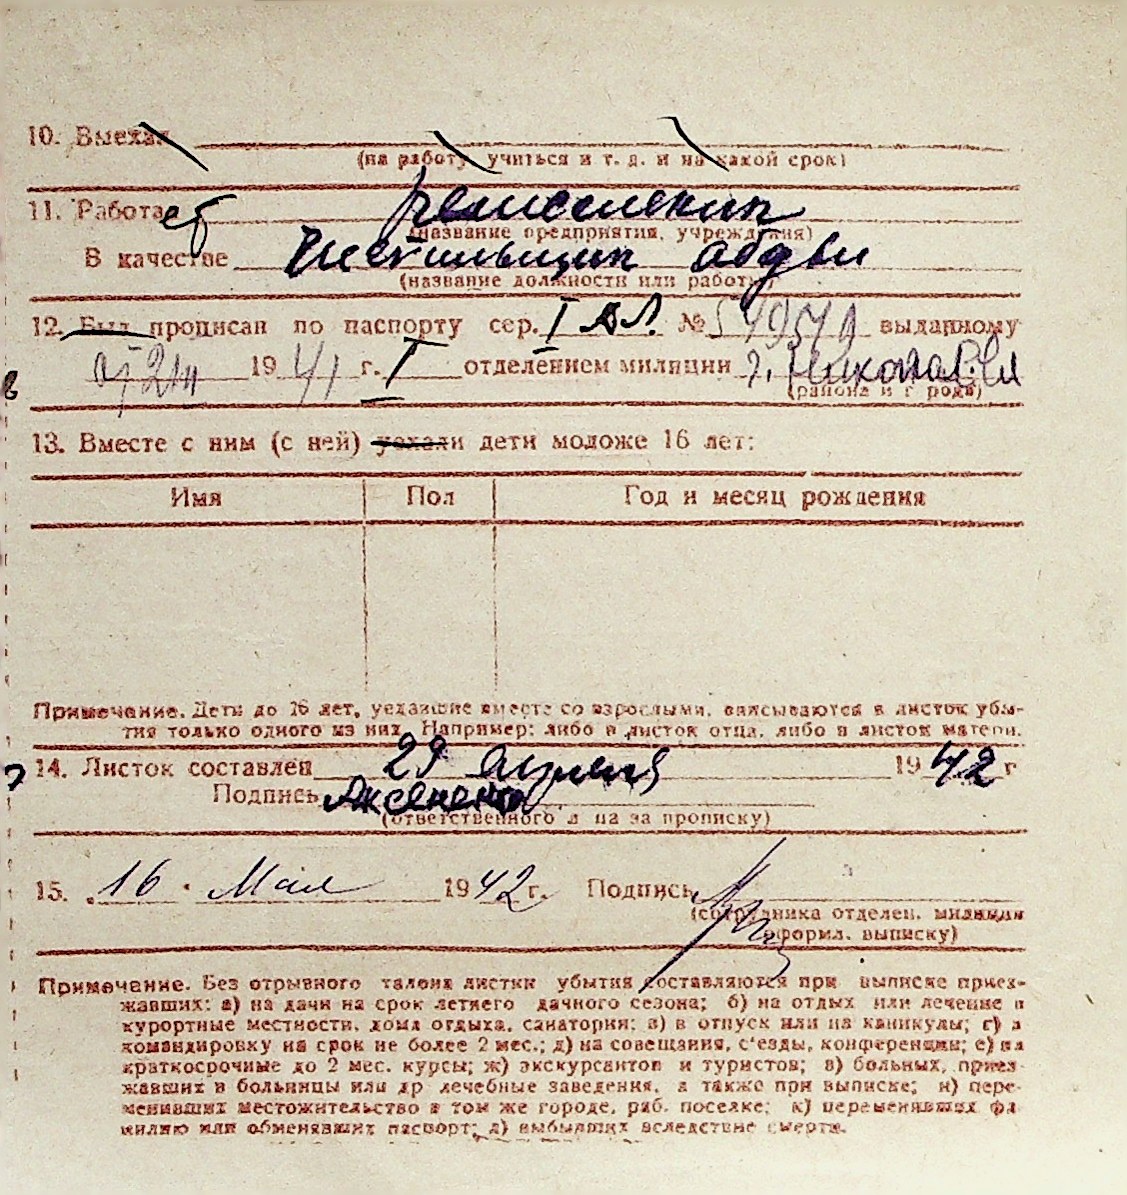 10. Выехал
(на работу учиться и т. д. и на какой срок)
11. Работает ремисленик
(название предприятия, учреждения)
В качестве обдви
(название должности или работы)
12. Был прописан по паспорту сер. I № выданному
19 41 г. I отделением милиции г. Николаев
(района и города)
13. Вместе с ним (с ней) уехали дети моложе 16 лет:
Имя Пол Год и месяц рождения
Примечание. Дети до 16 лет, уехавшие вместе со взрослыми, вписываются в листок убы-
тия только одного из них. Например: либо в листок отца, либо в листок матери.
14. Листок составлен 29 апреля 19 42 г
Подпись Аксененко
(ответственного л ца за прописку)
15. 16 Мая 19 42 г. Подпись
(сотрудника отделен. милиции
оформл. выписку)
Примечание. Без отрывного талона листки убытия составляются при выписке приез-
жавших: а) на дачи на срок летнего дачного сезона; б) на отдых или лечение в
курортные местности, дома отдыха, санатории; в) в отпуск или на каникулы; г) в
командировку на срок не более 2 мес.; д) на совещания, с'езды, конференции; е) на
краткосрочные до 2 мес. курсы; ж) экскурсантов и туристов; з) больных, приез-
жавших в больницы или др лечебные заведения, а также при выписке; и) пере-
менивших местожительство в том же городе, раб. поселке; к) переменивших фа
милию или обменявших паспорт; л) выбывших вследствие смерти.